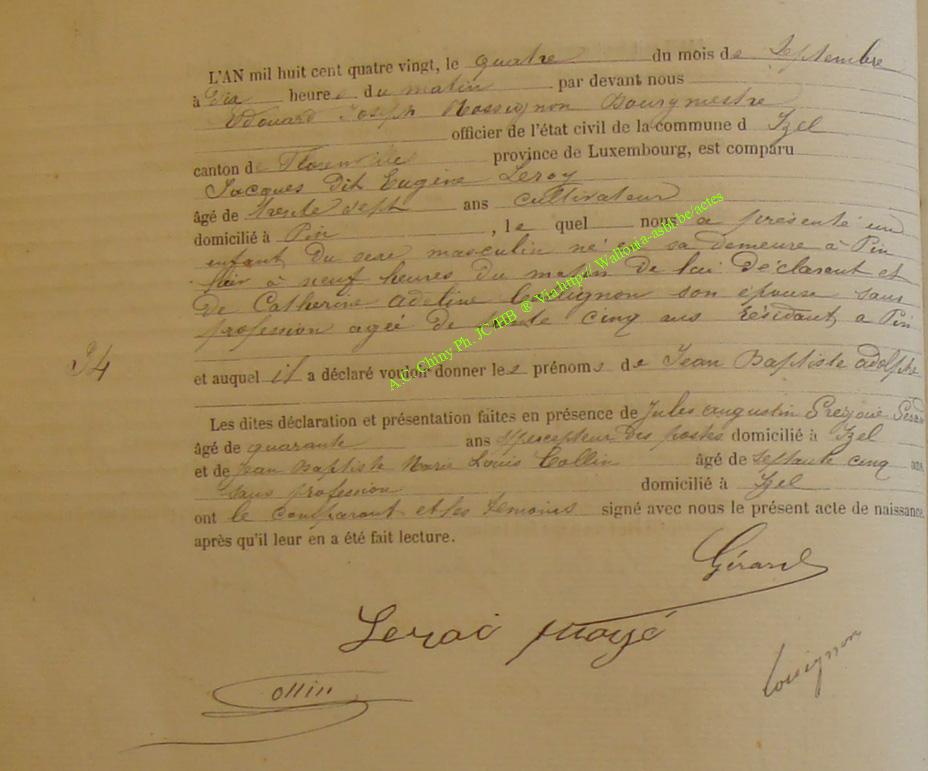 L'AN mil huit cent quatre vingt, le quatre du mois de Septembre
à Dix heures du matin par devant nous
Edouard Joseph Rossignon Bourgmestre
officier de l'état civil de la commune d Izel
canton de Florenville province de Luxembourg, est comparu
Jacques dit Eugène Leroy
âgé de trente sept ans cultivateur
domicilié à Pin, le quel nous a présenté un
enfant du sexe masculin né en sa demeure à Pin
hier à neuf heures du matin de lui déclarant et
de Catherine Adeline son épouse sans
profession agée de trente cinq ans résidant à Pin
34
et auquel il a déclaré vouloir donner les prénoms de Jean Baptiste Adolphe
Les dites déclaration et présentation faites en présence de Jules Augustin
âgé de quarante ans percepteur des postes domicilié à Izel
et de Jean Baptiste Marie Louis Collin âgé de septante cinq ans
sans profession domicilié à Izel
ont le comparant et les témoins signé avec nous le présent acte de naissance
après qu'il leur en a été fait lecture.
Gérard
Leroi
Collin
A.C. Chiny Ph. JC HB @ Via http:// Wallonia-asbl.be/actes